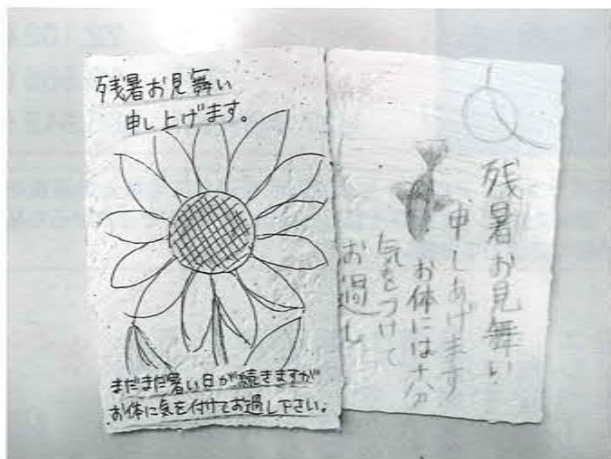 残暑お見舞い
申し上げます。
まだまだ暑い日が続きますが
お体に気を付けてお過し下さい。
残暑お見舞い
申しあげます
お体には十分
気をつけて
お過し